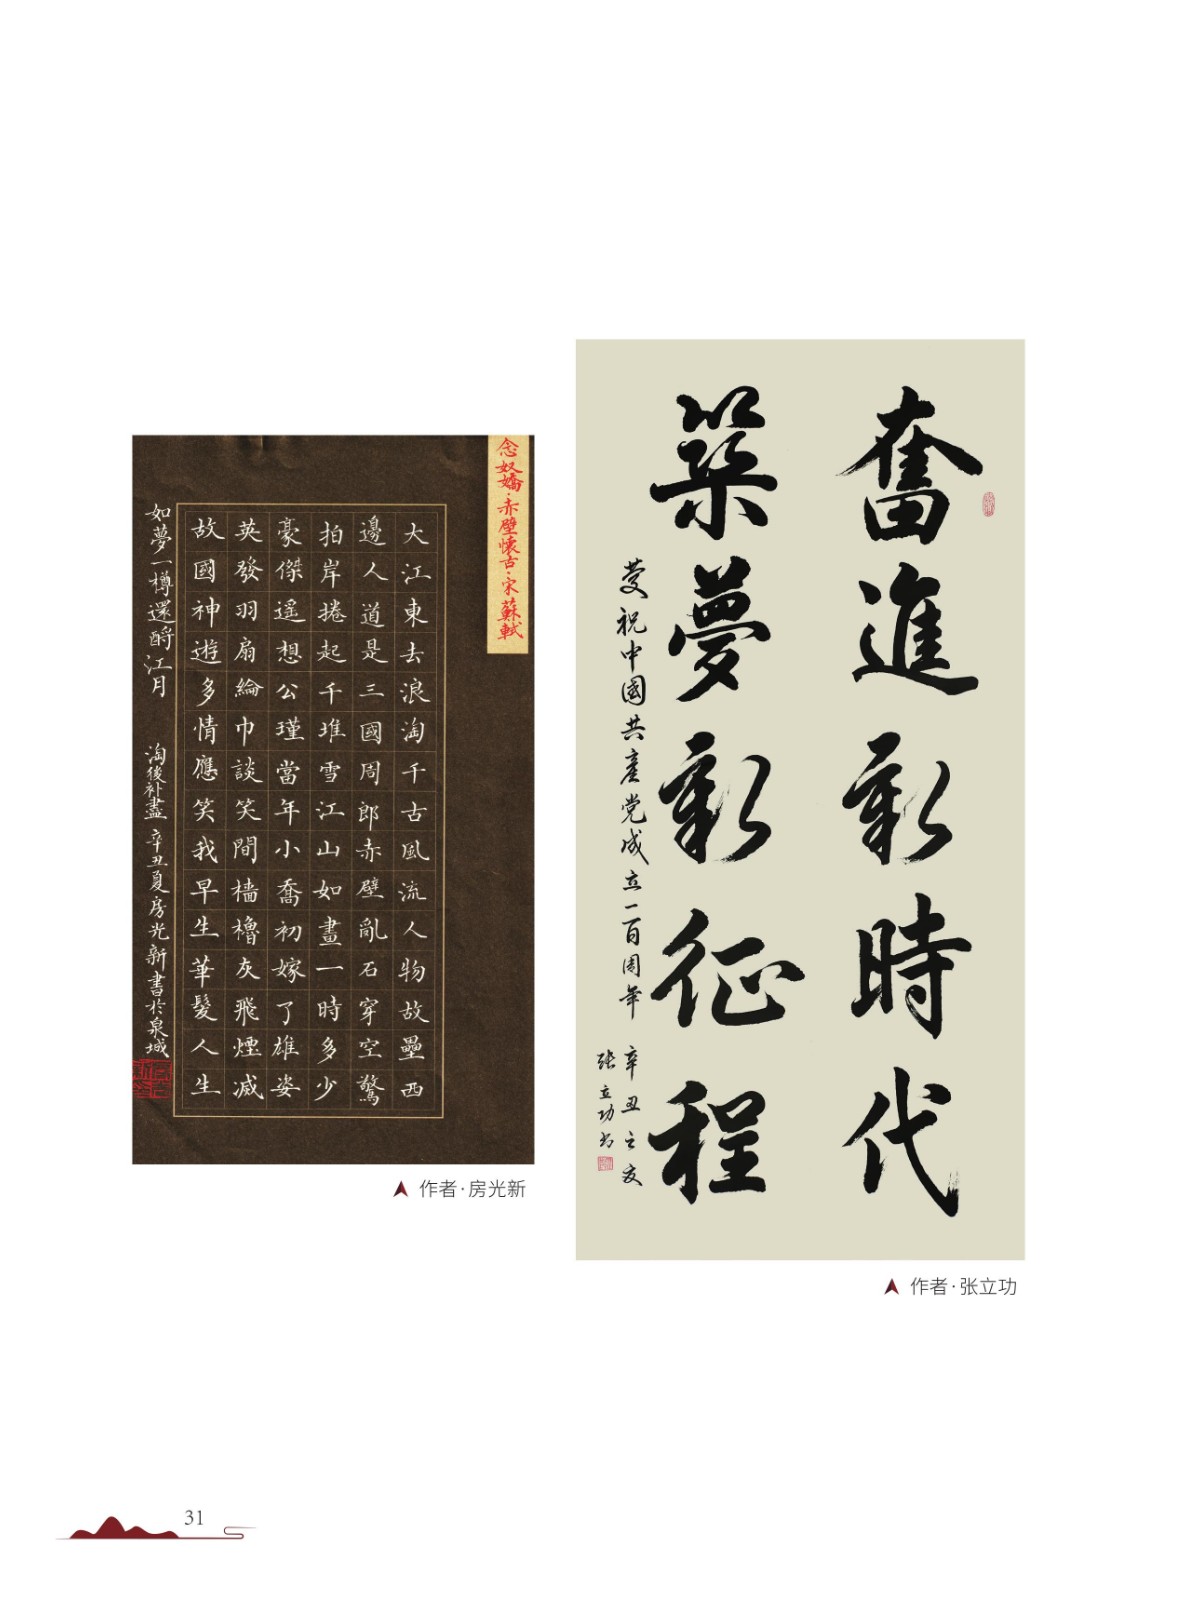 念奴嬌·赤壁懷古·宋蘇軾
大江東去浪淘千古風流人物故壘西
邊人道是三國周郎赤壁亂石穿空驚
拍岸捲起千堆雪江山如畫一時多少
豪傑遥想公瑾當年小喬初嫁了雄姿
英發羽扇綸巾談笑間檣櫓灰飛煙滅
故國神遊多情應笑我早生華髮人生
如夢一樽還酹江月 淘後补盡 辛丑夏房光新書於泉城
作者·房光新
奮進新時代
築夢新征程
慶祝中國共產党成立一百周年 辛丑之夏
张立功书
作者·张立功
31